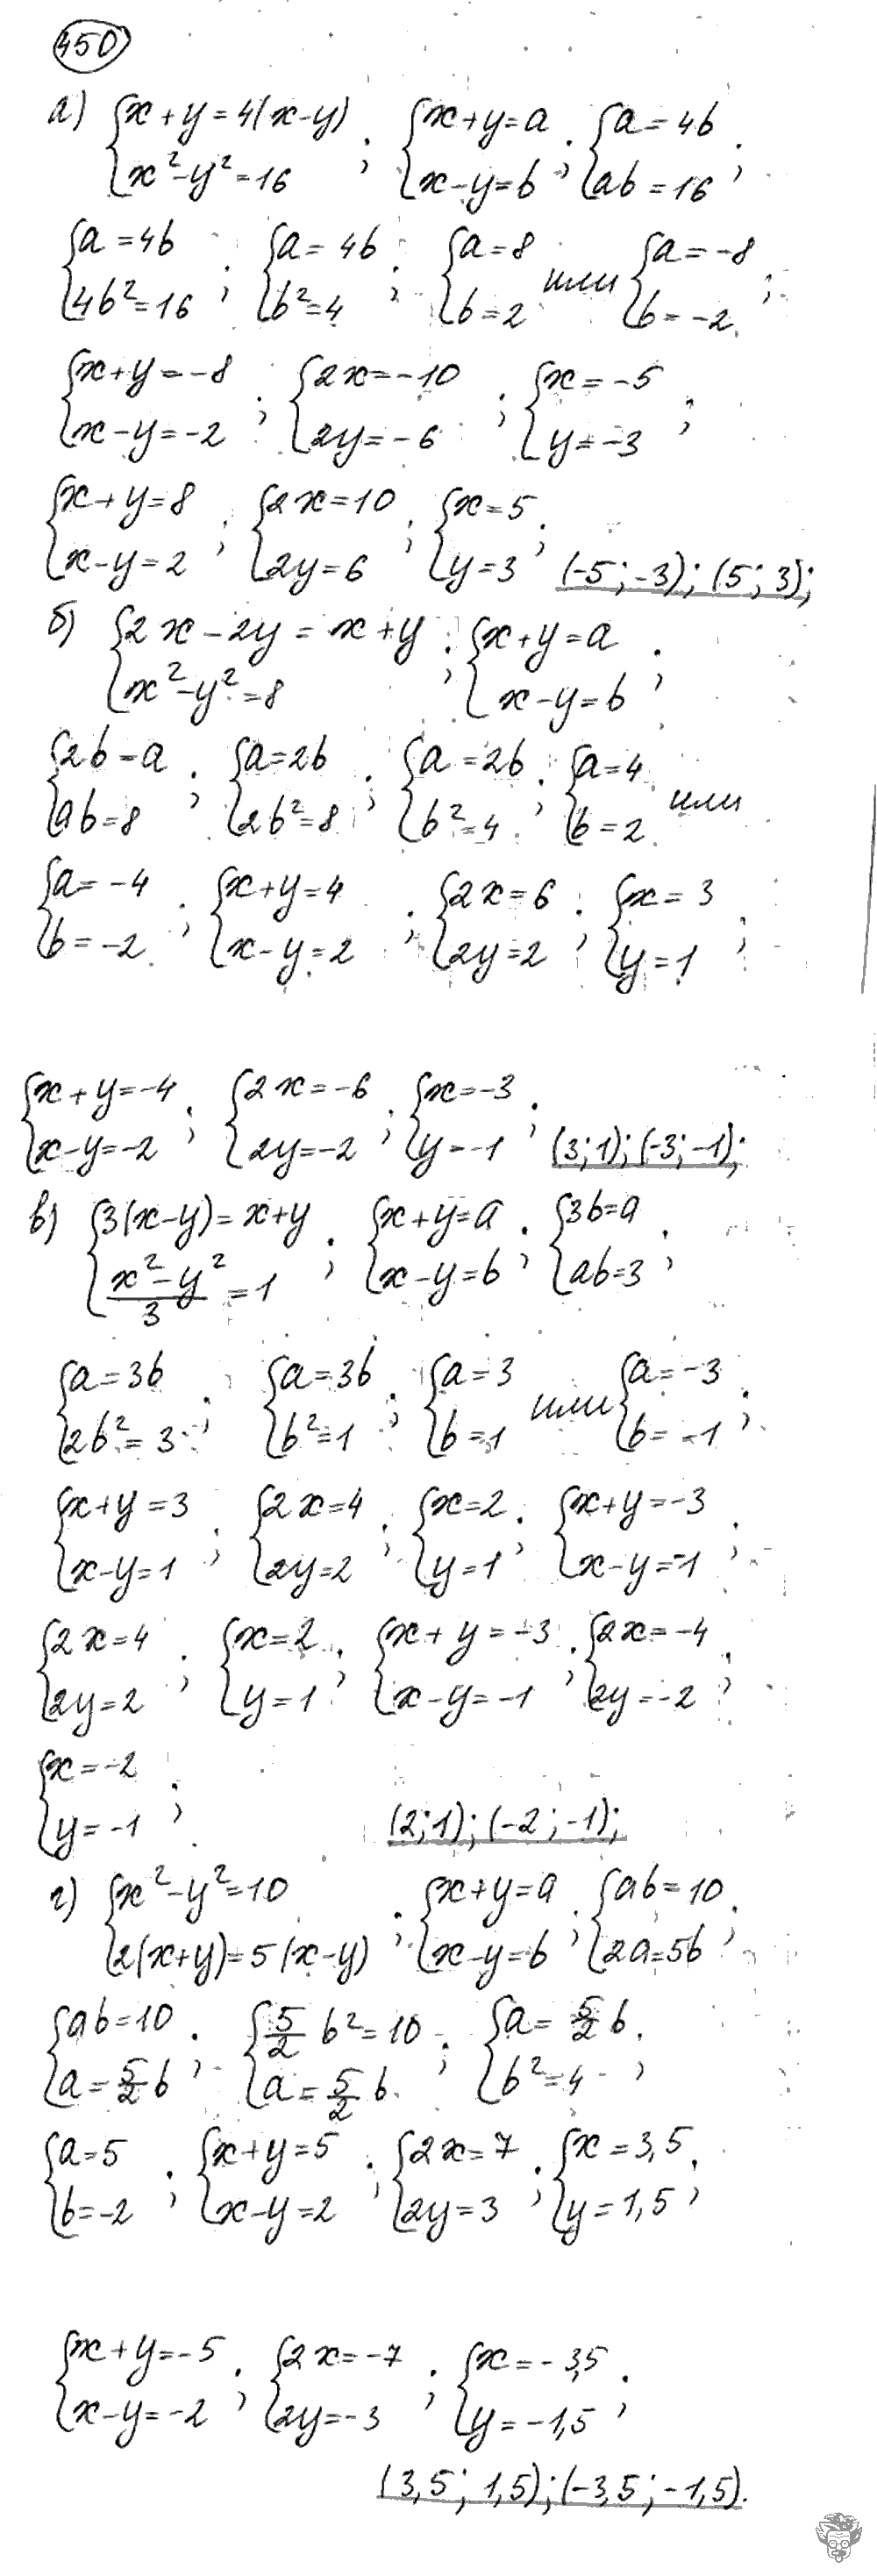 450
а) {x+y=4(x-y) x²-y²=16 ; {x+y=a x-y=b ; {a=4b ab=16 ;
{a=4b 4b²=16 ; {a=4b b²=4 ; {a=8 b=2 или {a=-8 b=-2 ;
{x+y=-8 x-y=-2 ; {2x=-10 2y=-6 ; {x=-5 y=-3 ;
{x+y=8 x-y=2 ; {2x=10 2y=6 ; {x=5 y=3 ; (-5; -3); (5; 3);
б) {2x-2y=x+y x²-y²=8 ; {x+y=a x-y=b ;
{2b=a ab=8 ; {a=2b 2b²=8 ; {a=2b b²=4 ; {a=4 b=2 или
{a=-4 b=-2 ; {x+y=4 x-y=2 ; {2x=6 2y=2 ; {x=3 y=1 ;
{x+y=-4 x-y=-2 ; {2x=-6 2y=-2 ; {x=-3 y=-1 ; (3;1); (-3;-1);
в) {3(x-y)=x+y (x²-y²)/3=1 ; {x+y=a x-y=b ; {3b=a ab=3 ;
{a=3b 2b²=3 ; {a=3b b²=1 ; {a=3 b=1 или {a=-3 b=-1 ;
{x+y=3 x-y=1 ; {2x=4 2y=2 ; {x=2 y=1 ; {x+y=-3 x-y=-1 ;
{2x=4 2y=2 ; {x=2 y=1 ; {x+y=-3 x-y=-1 ; {2x=-4 2y=-2 ;
{x=-2 y=-1 ; (2;1); (-2;-1);
г) {x²-y²=10 2(x+y)=5(x-y) ; {x+y=a x-y=b ; {ab=10 2a=5b ;
{ab=10 a=5/2 b ; {5/2 b²=10 a=5/2 b ; {a=5/2 b b²=4 ;
{a=5 b=-2 ; {x+y=5 x-y=2 ; {2x=7 2y=3 ; {x=3,5 y=1,5 ;
{x+y=-5 x-y=-2 ; {2x=-7 2y=-3 ; {x=-3,5 y=-1,5 ;
(3,5; 1,5); (-3,5; -1,5).